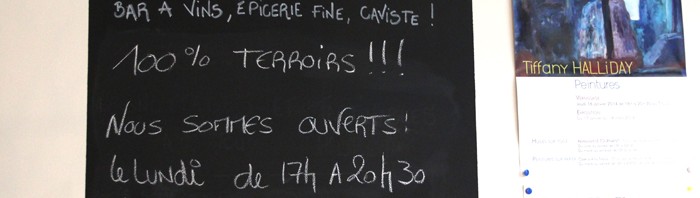 BAR A VINS, EPICERIE FINE, CAVISTE !
100% TERROIRS !!!
NOUS SOMMES OUVERTS !
le LUNDI de 17h A 20h30
Tiffany HALLiDAY
Peintures